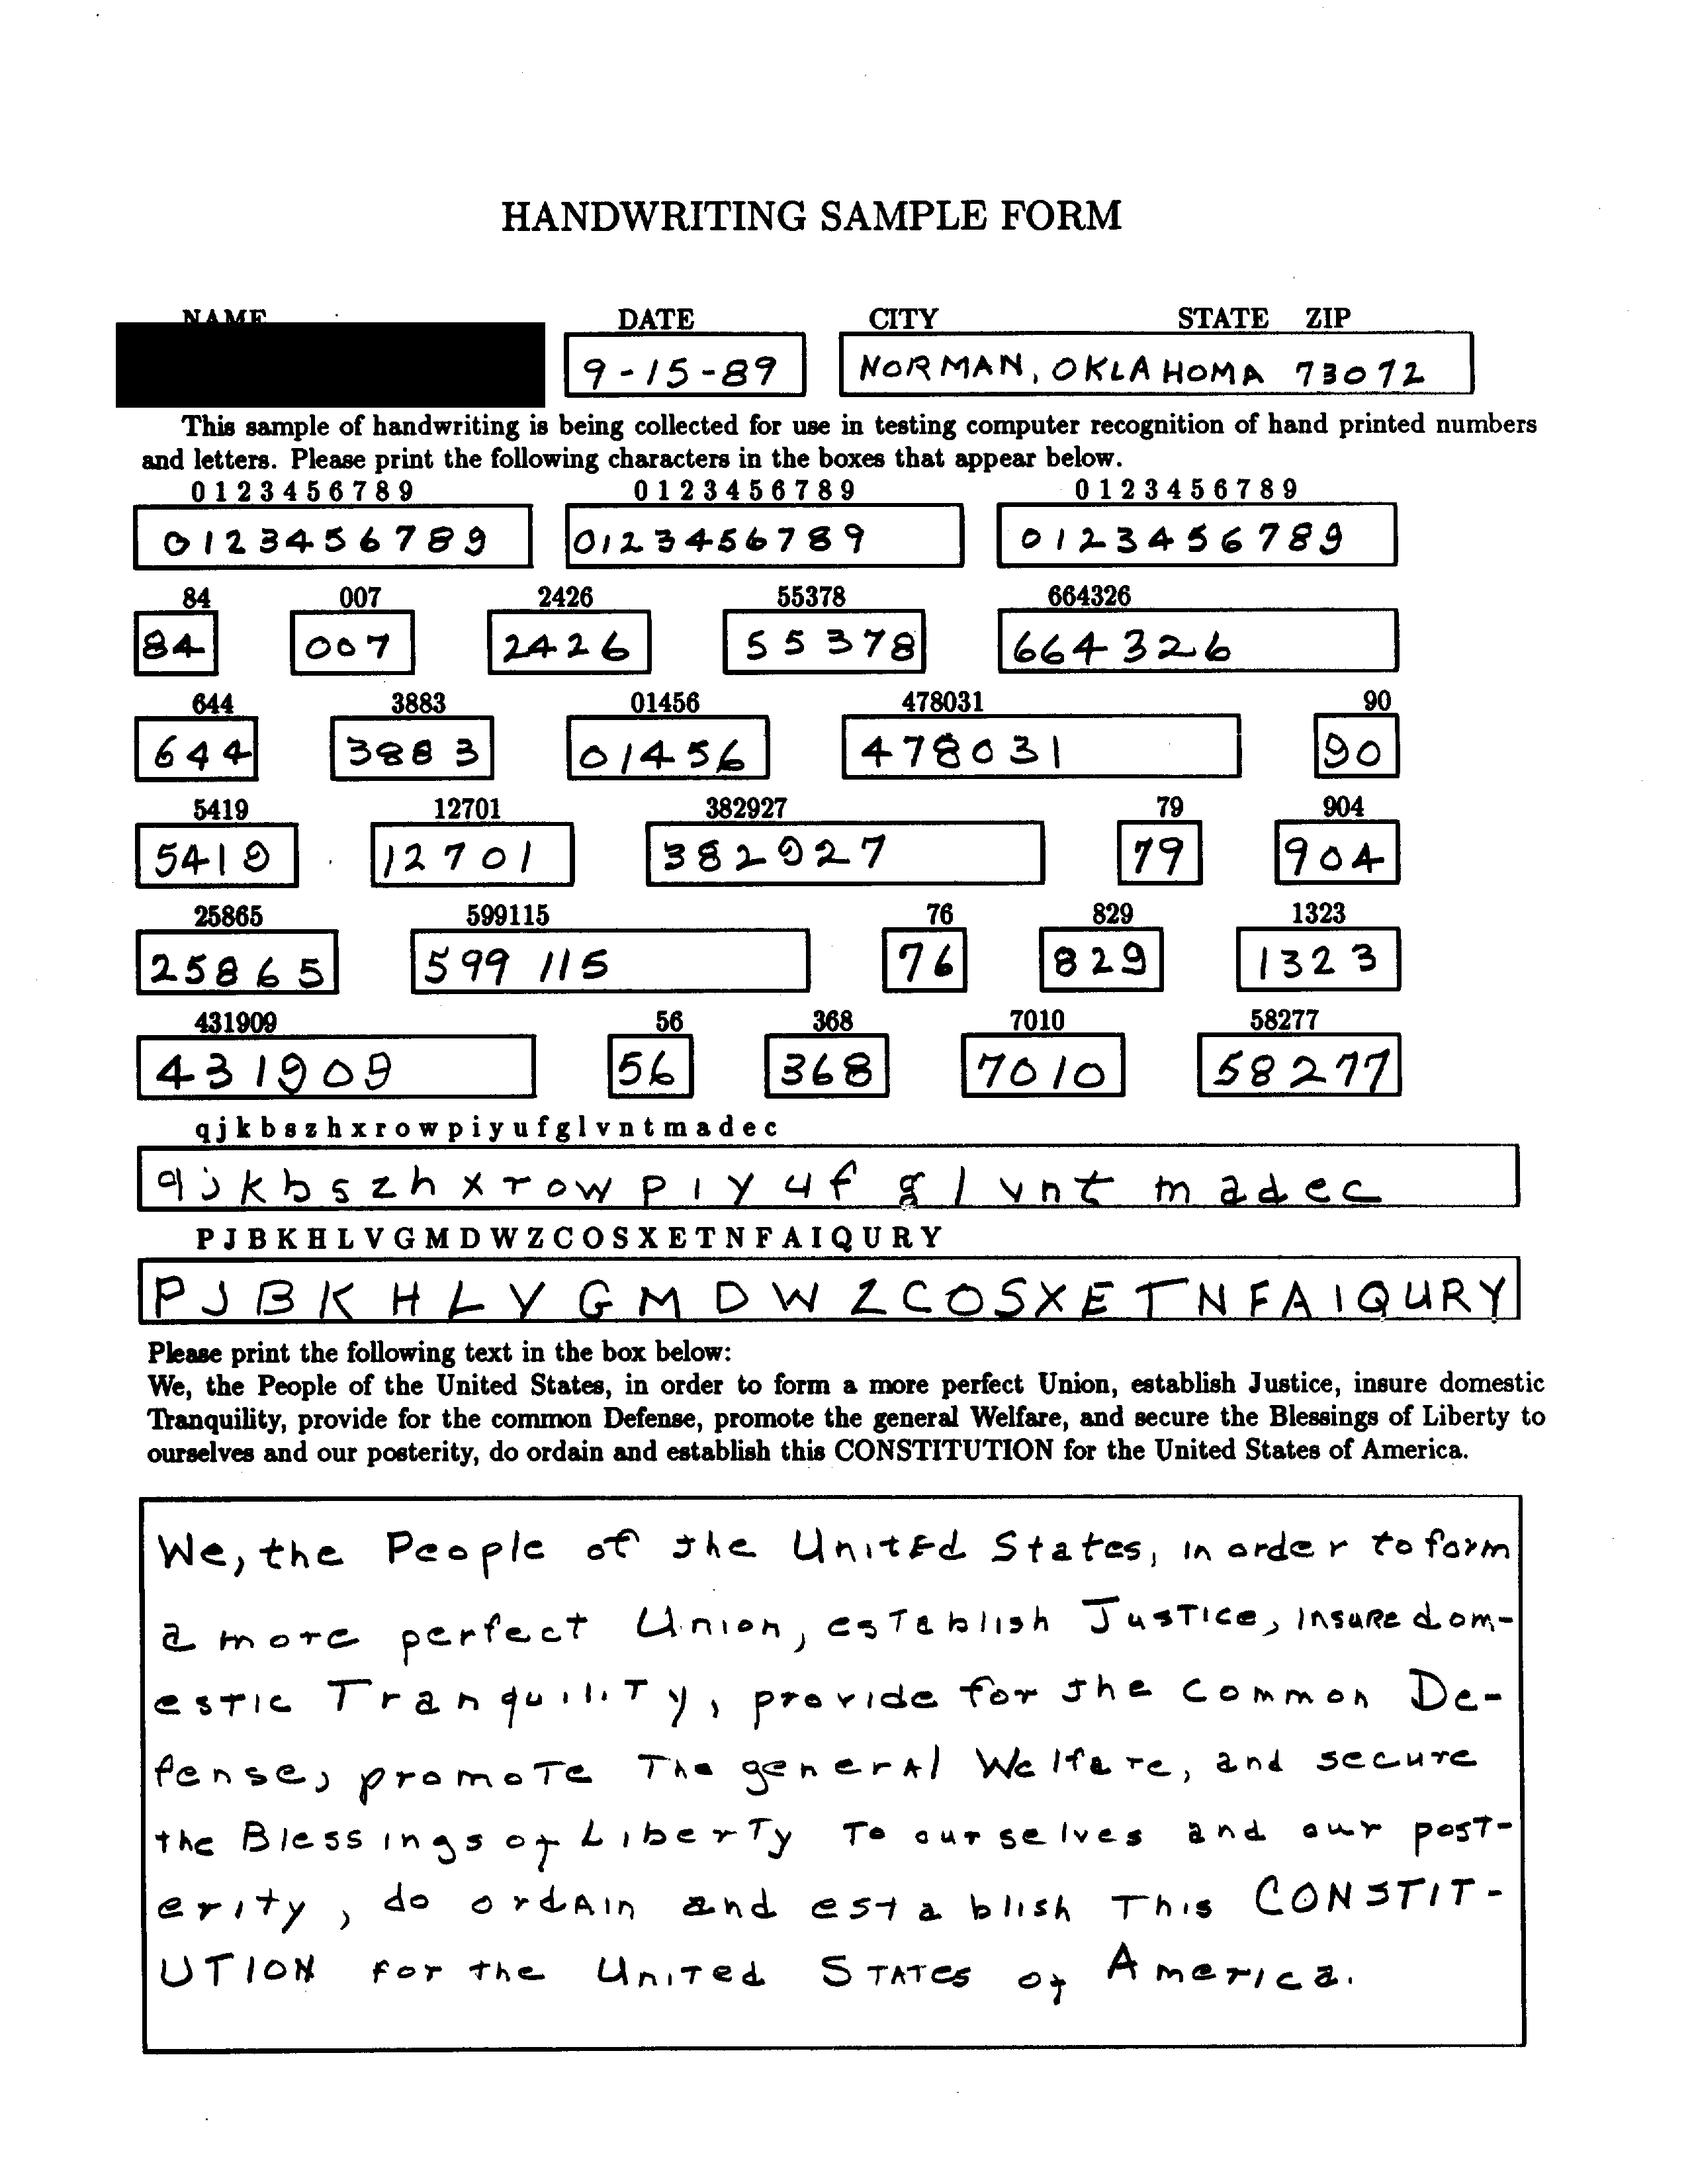 HANDWRITING SAMPLE FORM
NAME DATE CITY STATE ZIP
9-15-89 NORMAN, OKLAHOMA 73072
This sample of handwriting is being collected for use in testing computer recognition of hand printed numbers
and letters. Please print the following characters in the boxes that appear below.
0 1 2 3 4 5 6 7 8 9 0 1 2 3 4 5 6 7 8 9 0 1 2 3 4 5 6 7 8 9
0123456789 0123456789 0123456789
84 007 2426 55378 664326
84 007 2426 55378 664326
644 3883 01456 478031 90
644 3883 01456 478031 90
5419 12701 382927 79 904
5419 12701 382927 79 904
25865 599115 76 829 1323
25865 599115 76 829 1323
431909 56 368 7010 58277
431909 56 368 7010 58277
q j k b s z h x r o w p i y u f g l v n t m a d e c
q j k b s z h x r o w p i y u f g l v n t m a d e c
P J B K H L V G M D W Z C O S X E T N F A I Q U R Y
P J B K H L V G M D W Z C O S X E T N F A I Q U R Y
Please print the following text in the box below:
We, the People of the United States, in order to form a more perfect Union, establish Justice, insure domestic
Tranquility, provide for the common Defense, promote the general Welfare, and secure the Blessings of Liberty to
ourselves and our posterity, do ordain and establish this CONSTITUTION for the United States of America.
We, the People of the UnitEd States, in order to form
a more perfect Union, esTablish JusTIce, InsuRe dom-
estic Tranquility, provide for the common De-
fense, promoTe The generAl Welfare, and secure
the Blessings of LiberTy To ourselves and our post-
erity, do ordAin and establish This CONSTIT-
UTION for the UniTed STATes of America.